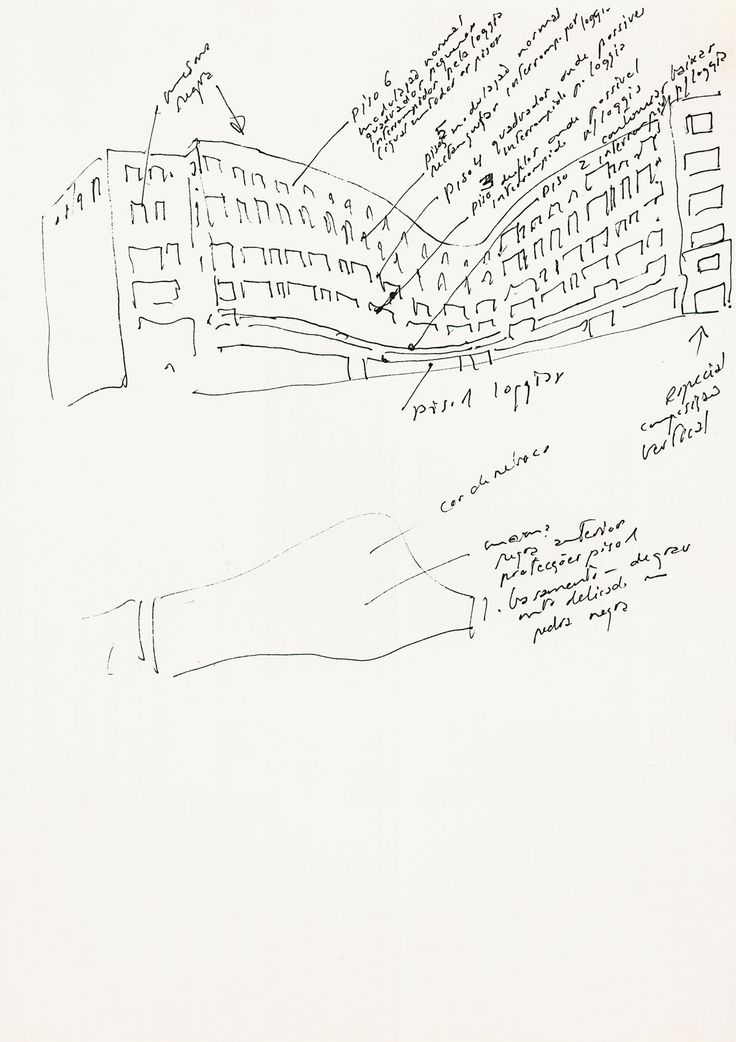 mesma
regra
piso 6
modulação normal
quadrados pequenos
interrompidos pela loggia
(igual em todos os pisos
piso 5 modulação normal
rectangular interromp. por loggia
piso 4 quadrados onde possível
interrompido p. loggia
piso 3 duplos onde possível
interrompido p/ loggia
piso 2 continuar baixar
interrompido p/ loggia
piso 1 loggias
especial
composição
vertical
cor de reboco
mesma
regra anterior
protecções piso 1
1. basamento — degrau
muito delicado —
pedra negra